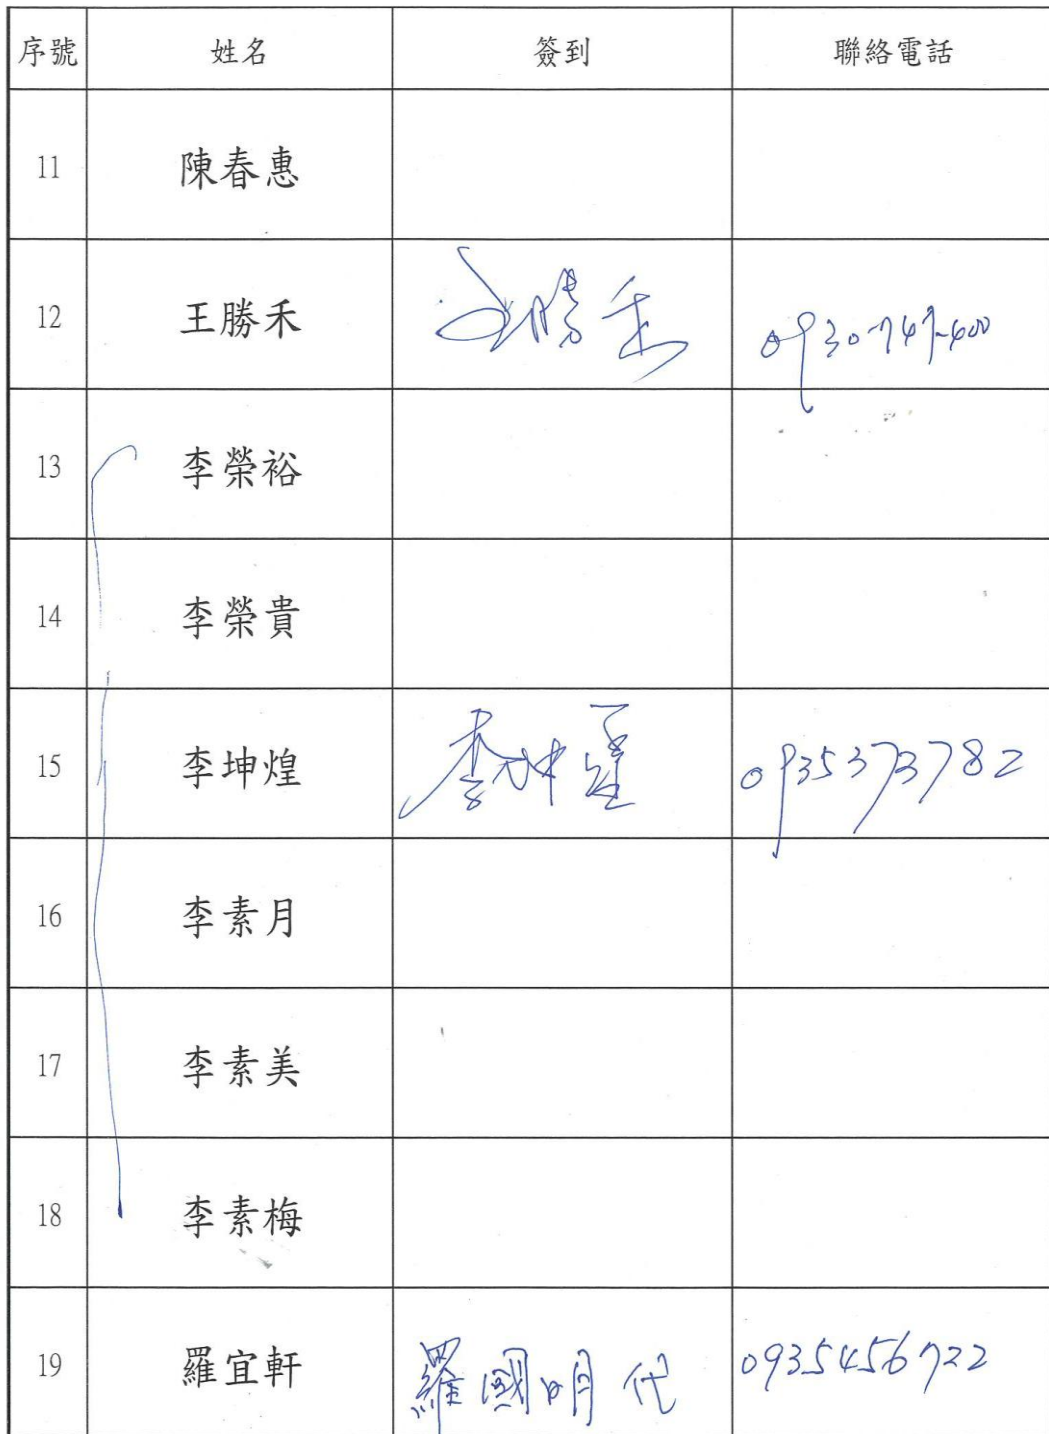 序號 姓名 簽到 聯絡電話
11 陳春惠
12 王勝禾 王勝禾 0930-747-400
13 李榮裕
14 李榮貴
15 李坤煌 李坤煌 0935373782
16 李素月
17 李素美
18 李素梅
19 羅宜軒 羅國明 代 0935456722